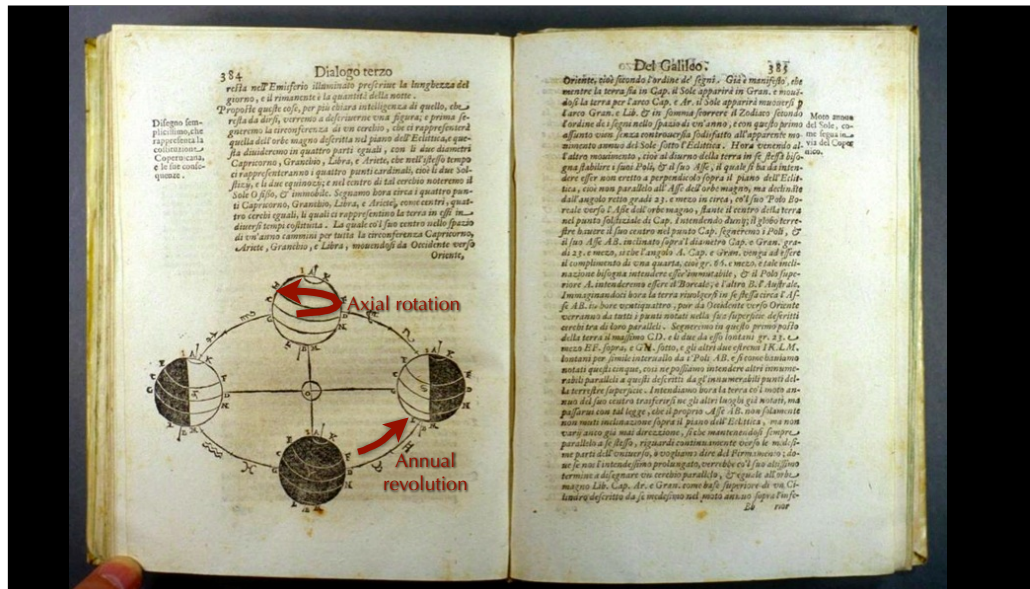 384
Dialogo terzo
resta nell'Emisferio illuminato prescrive la lunghezza del
giorno, e il rimanente è la quantità della notte.
Proposte queste cose, per più chiara intelligenza di quello, che
resta da dirsi, verremo a descriuerne vna figura; e prima se-
gneremo la circonferenza di vn cerchio, che ci rappresenterà
quella dell'orbe magno descritta nel piano dell'Eclittica, e que-
sta diuideremo in quattro parti eguali, con li due diametri
Capricorno, Granchio, Libra, e Ariete, che nell'istesso tempo
ci rappresenteranno i quattro punti cardinali, cioè li due Sol-
stizij, e li due equinozij; e nel centro di tal cerchio noteremo il
Sole O fisso, & immobile. Segnamo hora circa i quattro pun-
ti Capricorno, Granchio, Libra, e Ariete, come centri, quat-
tro cerchi eguali, li quali ci rappresentino la terra in essi in
diuersi tempi costituita. La quale co'l suo centro nello spazio
di vn'anno cammini per tutta la circonferenza Capricorno,
Ariete, Granchio, e Libra, mouendosi da Occidente verso
Oriente,
Disegno sem-
plicissimo, che
rappresenta la
costituzione
Copernicana,
e le sue conse-
guenze.
Axial rotation
Annual
revolution
Del Galileo.
385
Oriente, cioè secondo l'ordine de' segni. Già è manifesto, che
mentre la terra sia in Cap. il Sole apparirà in Gran. e mouen-
dosi la terra per l'arco Cap. e Ar. il Sole apparirà muouersi p
l'arco Gran. e Lib. & in somma scorrere il Zodiaco secondo
l'ordine de i segni nello spazio di vn'anno, e con questo primo
assunto vien senza controuersia sodisfatto all'apparente mo-
uimento annuo del Sole sotto l'Eclittica. Hora venendo al-
l'altro mouimento, cioè al diurno della terra in se stessa biso-
gna stabilire i suoi Poli, & il suo Asse, il quale si ha da inten-
dere esser non eretto a perpendicolo sopra il piano dell'Eclit-
tica, cioè non parallelo all'Asse dell'orbe magno, ma declinante
dall'angolo retto gradi 23. e mezo in circa, co'l suo Polo Bo-
reale verso l'Asse dell'orbe magno, stante il centro della terra
nel punto solstiziale di Cap. Intendendo dunq; il globo terre-
stre hauere il suo centro nel punto Cap. segneremo i Poli, &
il suo Asse AB. inclinato sopra'l diametro Cap. e Gran. gra-
di 23. e mezo, sì che l'angolo A. Cap. e Gran. venga ad essere
il complimento di vna quarta, cioè gr. 66. e mezo, e tale incli-
nazione bisogna intendere esser'immutabile, & il Polo supe-
riore A. intenderemo essere il Boreale, e l'altro B. l'Australe.
Immaginandoci hora la terra riuolgersi in se stessa circa l'As-
se AB. in hore ventiquattro, pur da Occidente verso Oriente
verranno da tutti i punti notati nella sua superficie descritti
cerchi tra di loro paralleli. Segneremo in questo primo posto
della terra il massimo CD. e li due da esso lontani gr. 23. e
mezo EF. sopra, e GN. sotto, e gli altri due estremi IK. LM.
lontani per simile interuallo da i Poli AB. e si come hauiamo
notati questi cinque, così ne possiamo intendere altri innume-
rabili paralleli a questi descritti da gl'innumerabili punti del-
la terrestre superficie. Intendiamo hora la terra co'l moto an-
nuo del suo centro trasferirsi ne gli altri luoghi già notati, ma
passarui con tal legge, che il proprio Asse AB. non solamente
non muti inclinazione sopra il piano dell'Eclittica, ma non
varij anco già mai direzione, sì che mantenendosi sempre
parallelo a se stesso, riguardi continuamente verso le medesi-
me parti dell'vniuerso, o vogliamo dire del Firmamento; do-
ue se noi l'intendessimo prolungato, verrebbe co'l suo altissimo
termine a disegnare vn cerchio parallelo, & eguale all'orbe
magno Lib. Cap. Ar. e Gran. come base superiore di vn Ci-
lindro descritto da se medesimo nel moto annuo sopra l'infe-
Bb
rior
Moto annuo
del Sole, co-
me segua in
via del Coper
nico.